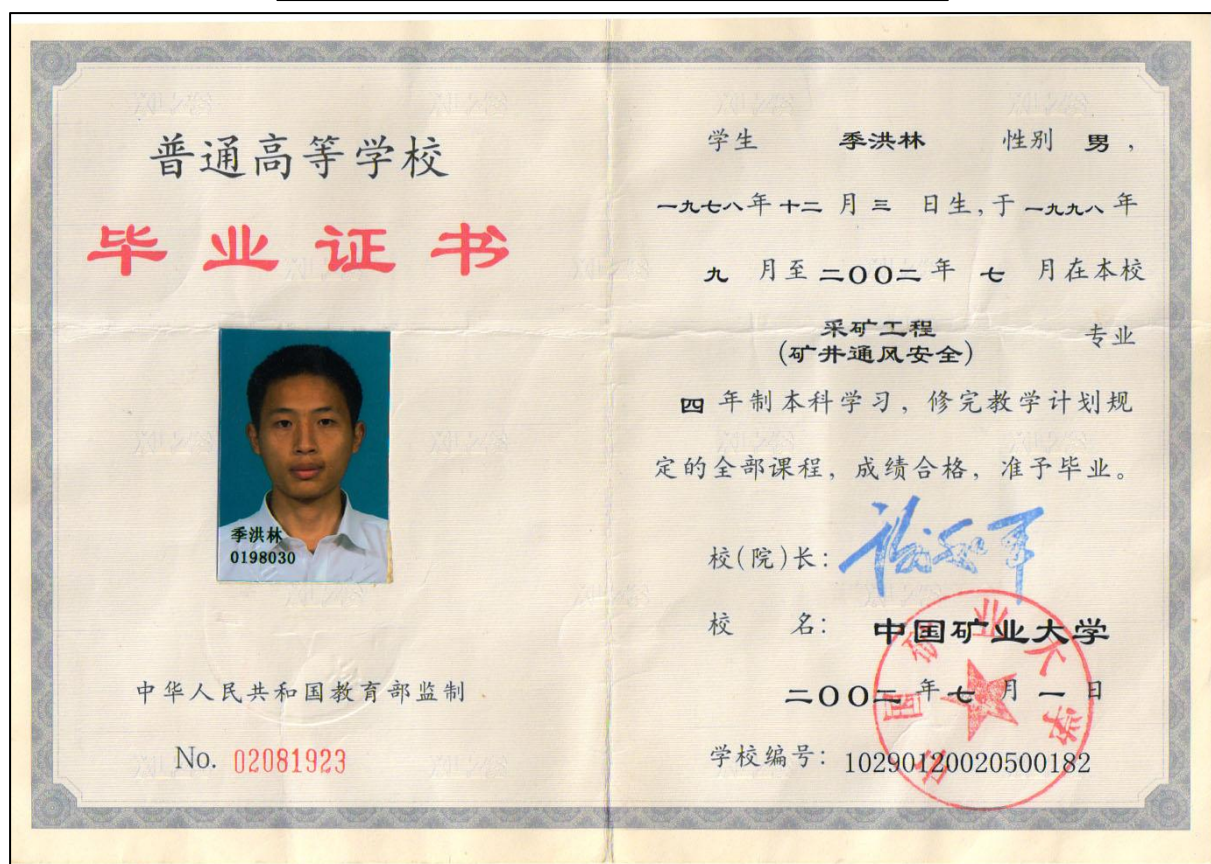 普通高等学校
毕业证书
季洪林
0198030
中华人民共和国教育部监制
No. 02081923
学生 季洪林 性别 男,
一九七八年十二月三 日生,于一九九八年
九 月至二〇〇二年 七 月在本校
采矿工程
(矿井通风安全) 专业
四 年制本科学习, 修完教学计划规
定的全部课程, 成绩合格, 准予毕业。
校(院)长:
校 名: 中国矿业大学
二〇〇二年七月一日
学校编号: 10290120020500182
中国矿业大学